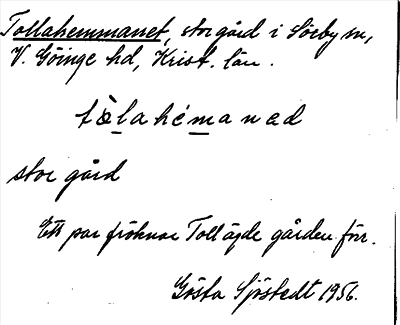 Tollahemmanet, stor gård i Sörby sn,
V. Göinge hd, Krist. län.
tòlahémaned
stor gård
Ett par fröknar Toll ägde gården förr.
Gösta Sjöstedt 1956.